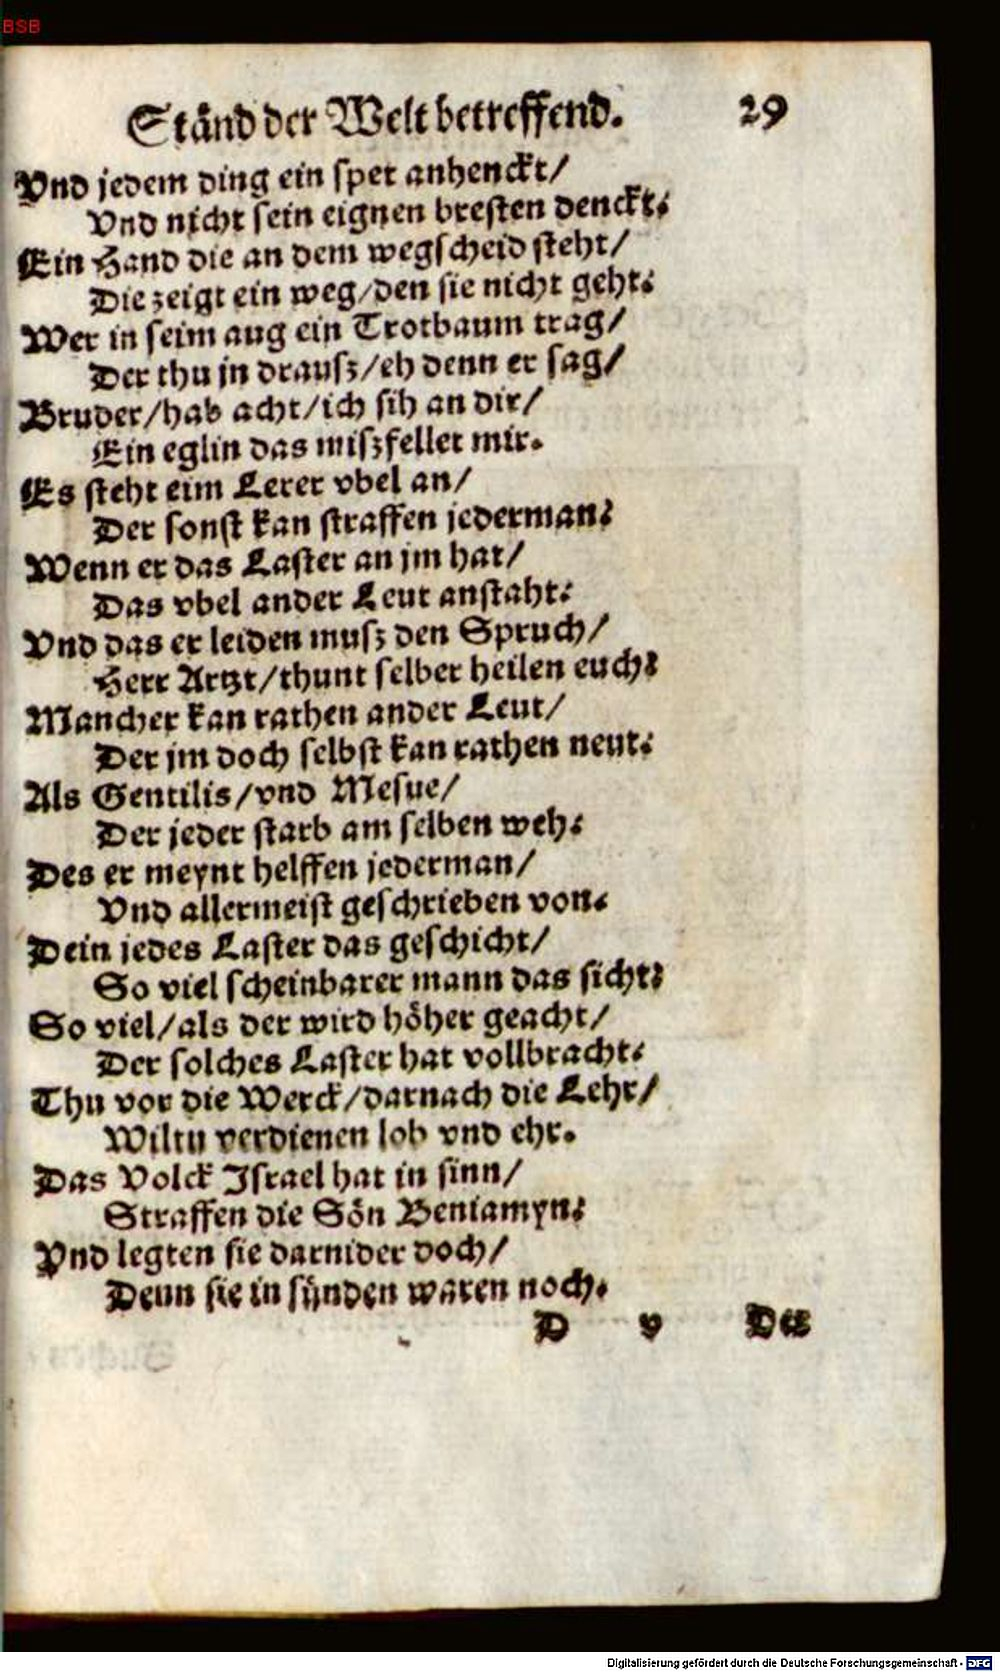 BSB
Ständ der Welt betreffend. 29
Vnd jedem ding ein spet anhenckt/
Vnd nicht sein eignen bresten denckt:
Ein Hand die an dem wegscheid steht/
Die zeigt ein weg/den sie nicht geht:
Wer in seim aug ein Trotbaum trag/
Der thu jn drausz/eh denn er sag/
Bruder/hab acht/ich sih an dir/
Ein eglin das miszfellet mir.
Es steht eim Lerer vbel an/
Der sonst kan straffen jederman:
Wenn er das Laster an jm hat/
Das vbel ander Leut anstaht:
Vnd das er leiden musz den Spruch/
Herr Artzt/thunt selber heilen euch:
Mancher kan rathen ander Leut/
Der jm doch selbst kan rathen neut:
Als Gentilis/vnd Mesue/
Der jeder starb am selben weh:
Des er meynt helffen jederman/
Vnd allermeist geschrieben von:
Dein jedes Laster das geschicht/
So viel scheinbarer mann das sicht:
So viel/als der wird höher geacht/
Der solches Laster hat vollbracht:
Thu vor die Werck/darnach die Lehr/
Wiltu verdienen lob vnd ehr.
Das Volck Israel hat in sinn/
Straffen die Sön Beniamyn:
Vnd legten sie darnider doch/
Denn sie in sünden waren noch.
D v Der
Digitalisierung gefördert durch die Deutsche Forschungsgemeinschaft - DFG